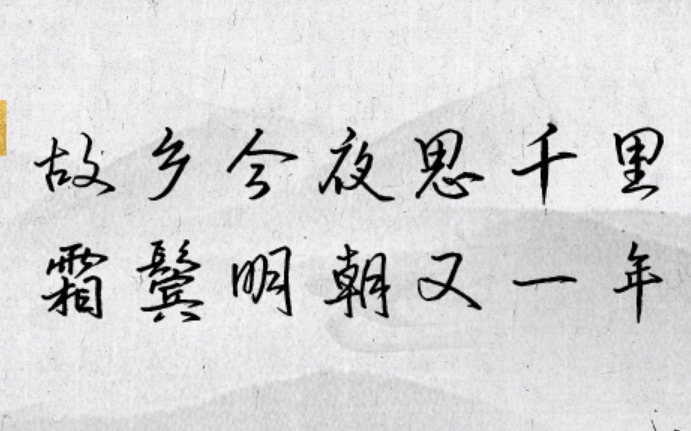 故乡今夜思千里
霜鬓明朝又一年